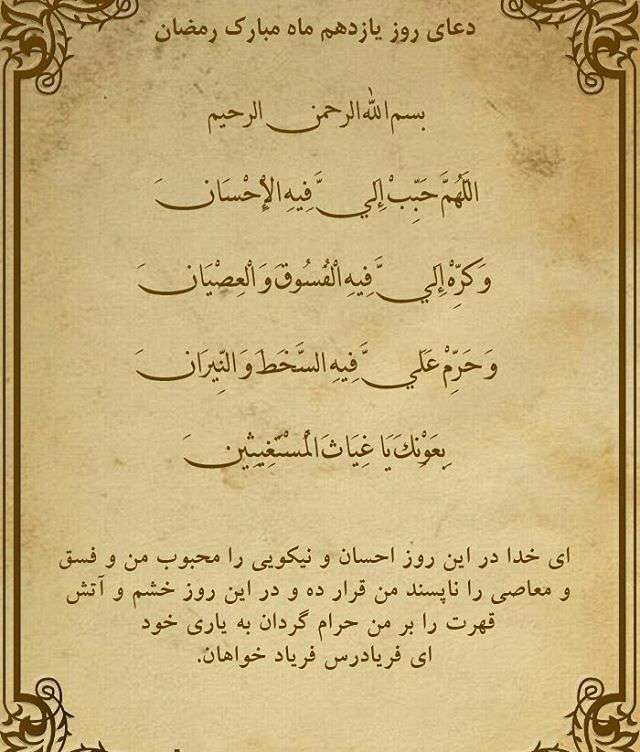 دعای روز یازدهم ماه مبارک رمضان
بسم الله الرحمن الرحیم
اللَّهُمَّ حَبِّبْ إِلَيَّ فِيهِ الْإِحْسَانَ
وَ كَرِّهْ إِلَيَّ فِيهِ الْفُسُوقَ وَ الْعِصْيَانَ
وَ حَرِّمْ عَلَيَّ فِيهِ السَّخَطَ وَ النِّيرَانَ
بِعَوْنِكَ يَا غِيَاثَ الْمُسْتَغِيثِينَ
ای خدا در این روز احسان و نیکویی را محبوب من و فسق
و معاصی را ناپسند من قرار ده و در این روز خشم و آتش
قهرت را بر من حرام گردان به یاری خود
ای فریادرس فریاد خواهان.